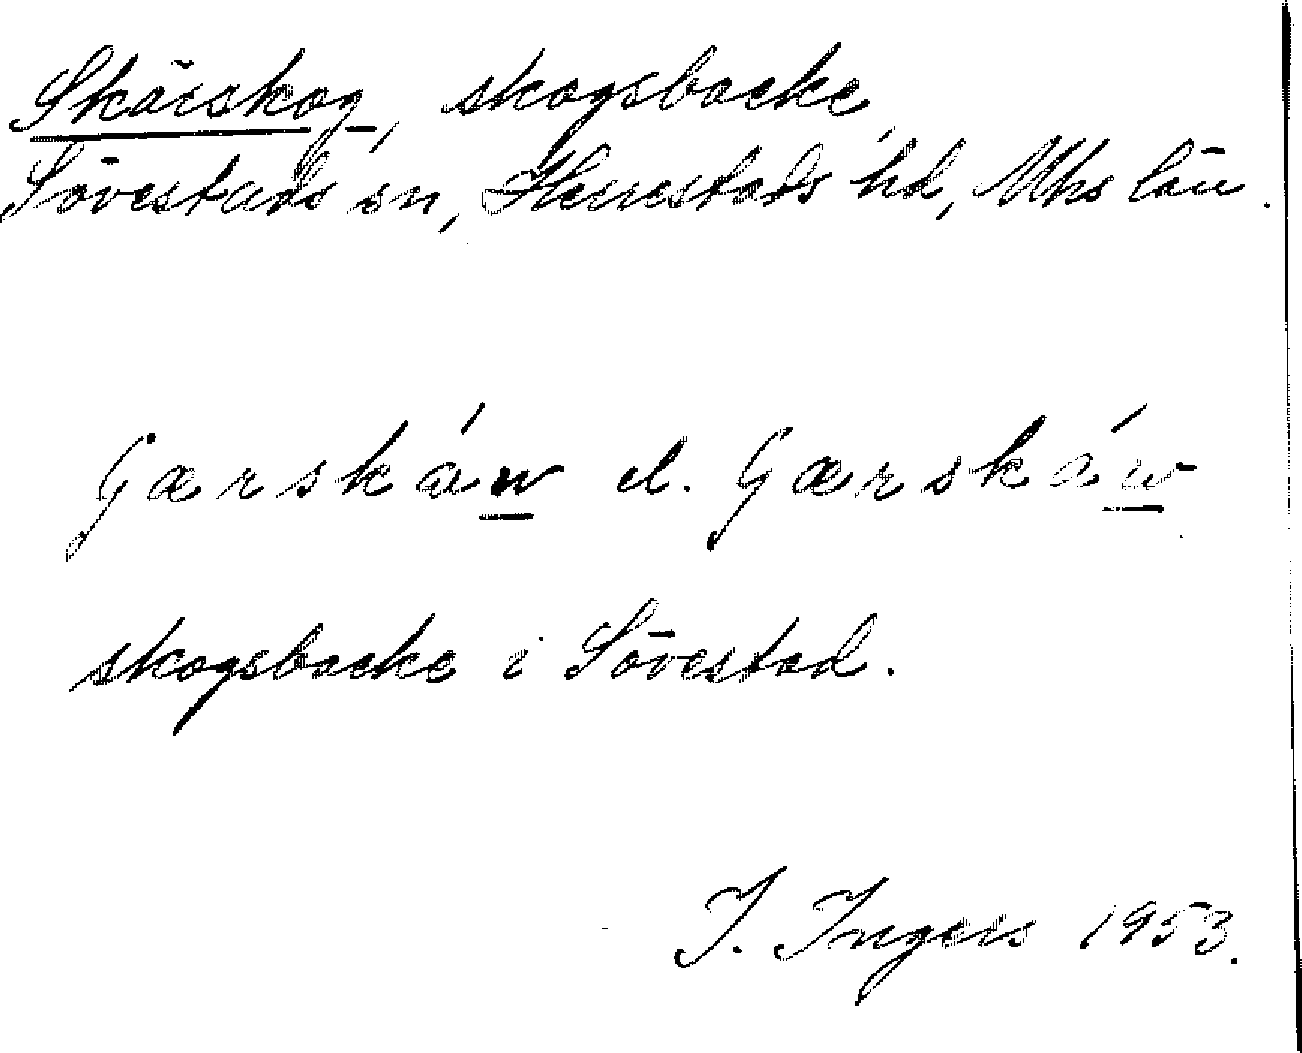 Skärskog, skogsbacke,
Sövestads sn, Herrestads hd, Mhs län.
Gærskáw el. Gærskáw
skogsbacke i Sövestad.
I. Ingers 1953.